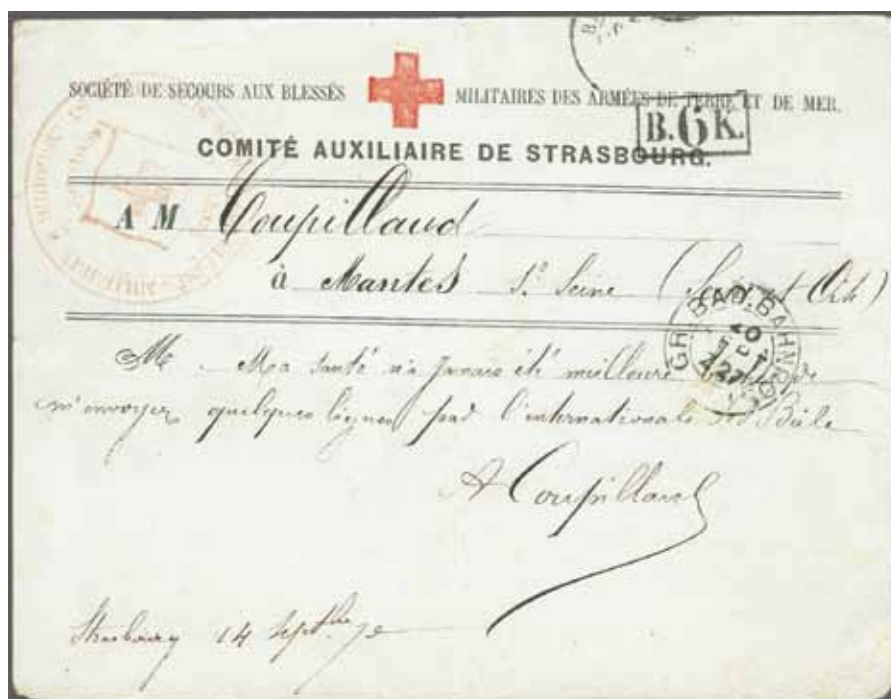 SOCIÉTÉ DE SECOURS AUX BLESSÉS MILITAIRES DES ARMÉES DE TERRE ET DE MER.
B.6K.
COMITÉ AUXILIAIRE DE STRASBOURG.
A M Coupilland
à Mantes s. Seine (Seine et Oise)
GR. BAD. BAHNPOST
M. Ma santé n'a jamais été meilleure de
m'envoyer quelques lignes par l'internationale de Bâle
A Coupilland
Strasbourg 14 Septbre 70